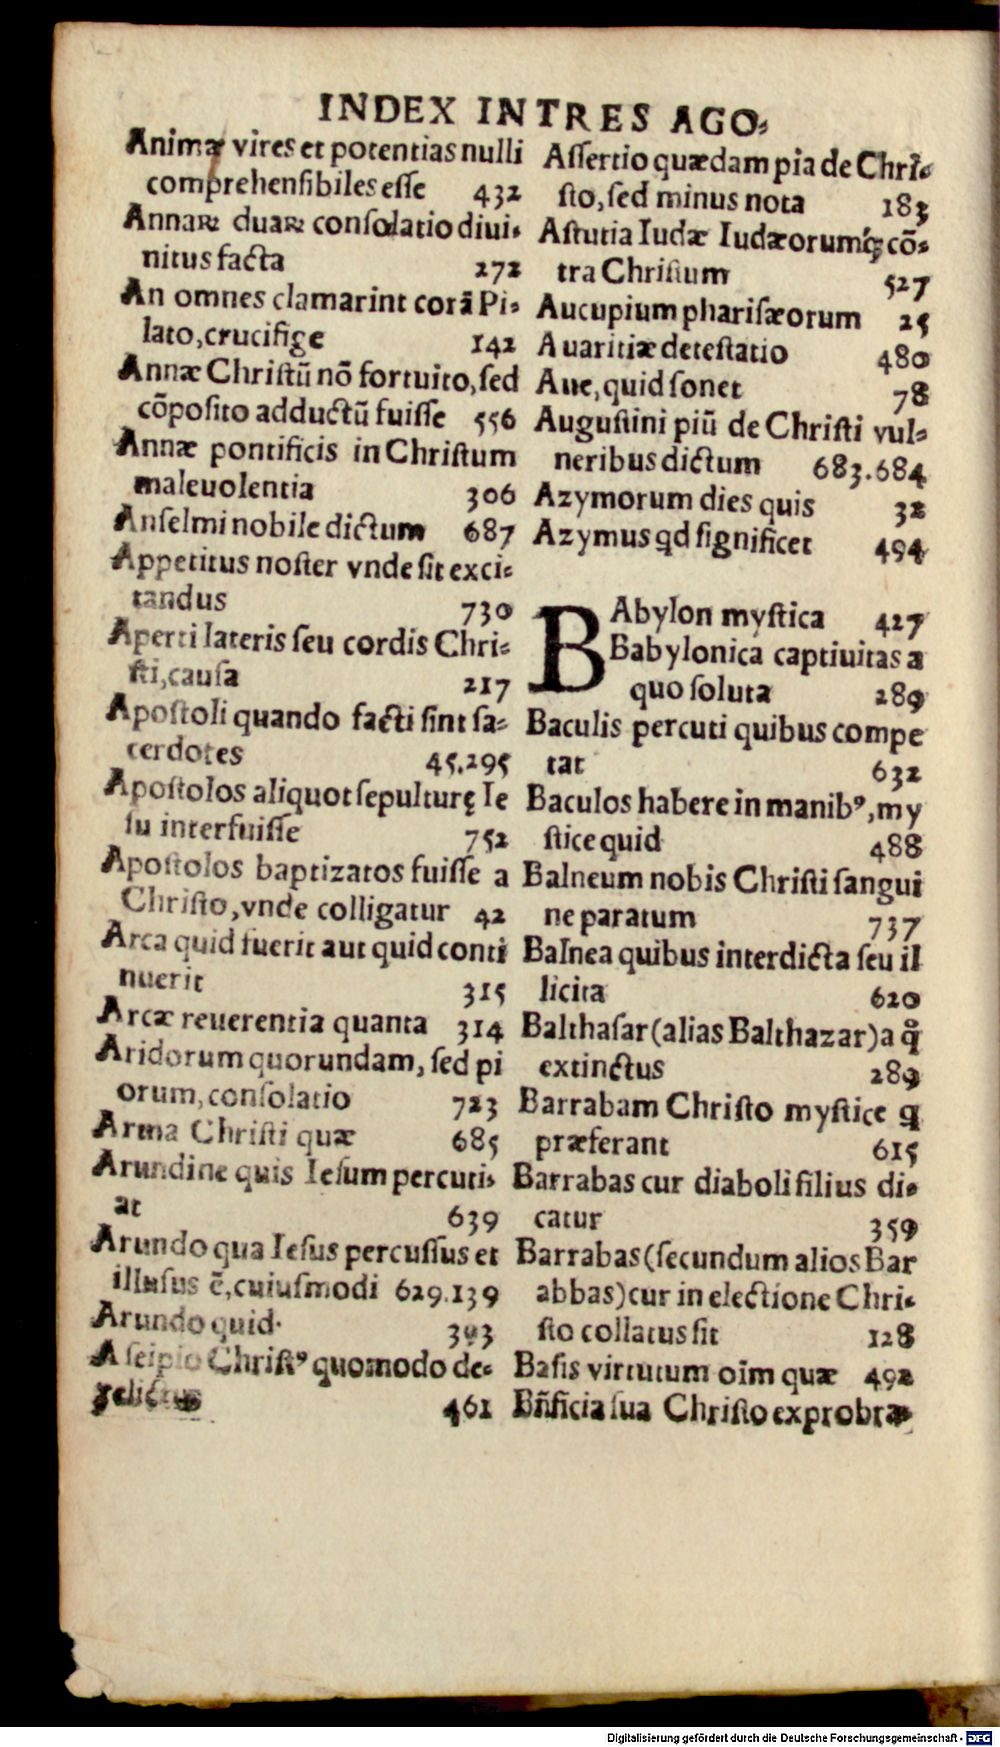 INDEX IN TRES AGO⸗
Animæ vires et potentias nulli
comprehensibiles esse 432
Annaꝝ duaꝝ consolatio diui⸗
nitus facta 272
An omnes clamarint corā Pi⸗
lato, crucifige 142
Annæ Christū nō fortuito, sed
cōposito adductū fuisse 556
Annæ pontificis in Christum
maleuolentia 306
Anselmi nobile dictum 687
Appetitus noster vnde sit exci⸗
tandus 730
Aperti lateris seu cordis Chri⸗
sti, causa 217
Apostoli quando facti sint sa⸗
cerdotes 45.295
Apostolos aliquot sepulturę Ie
su interfuisse 752
Apostolos baptizatos fuisse a
Christo, vnde colligatur 42
Arca quid fuerit aut quid conti
nuerit 315
Arcæ reuerentia quanta 314
Aridorum quorundam, sed pi
orum, consolatio 723
Arma Christi quæ 685
Arundine quis Iesum percuti⸗
at 639
Arundo qua Iesus percussus et
illusus ē, cuiusmodi 629.139
Arundo quid. 303
A seipso Christꝰ quomodo de⸗
relictus 461
Assertio quædam pia de Chri⸗
sto, sed minus nota 183
Astutia Iudæ Iudæorumqꝫ cō⸗
tra Christum 527
Aucupium pharisæorum 25
Auaritiæ detestatio 480
Aue, quid sonet 78
Augustini piū de Christi vul⸗
neribus dictum 683.684
Azymorum dies quis 32
Azymus qd significet 494
BAbylon mystica 427
Babylonica captiuitas a
quo soluta 289
Baculis percuti quibus compe
tat 632
Baculos habere in manibꝰ, my
stice quid 488
Balneum nobis Christi sangui
ne paratum 737
Balnea quibus interdicta seu il
licita 620
Balthasar (alias Balthazar) a q̊
extinctus 289
Barrabam Christo mystice q
præferant 615
Barrabas cur diaboli filius di⸗
catur 359
Barrabas (secundum alios Bar
abbas) cur in electione Chri⸗
sto collatus sit 128
Basis virtutum oīm quæ 492
Bn̄ficia sua Christo exprobræ⸗
Digitalisierung gefördert durch die Deutsche Forschungsgemeinschaft - DFG